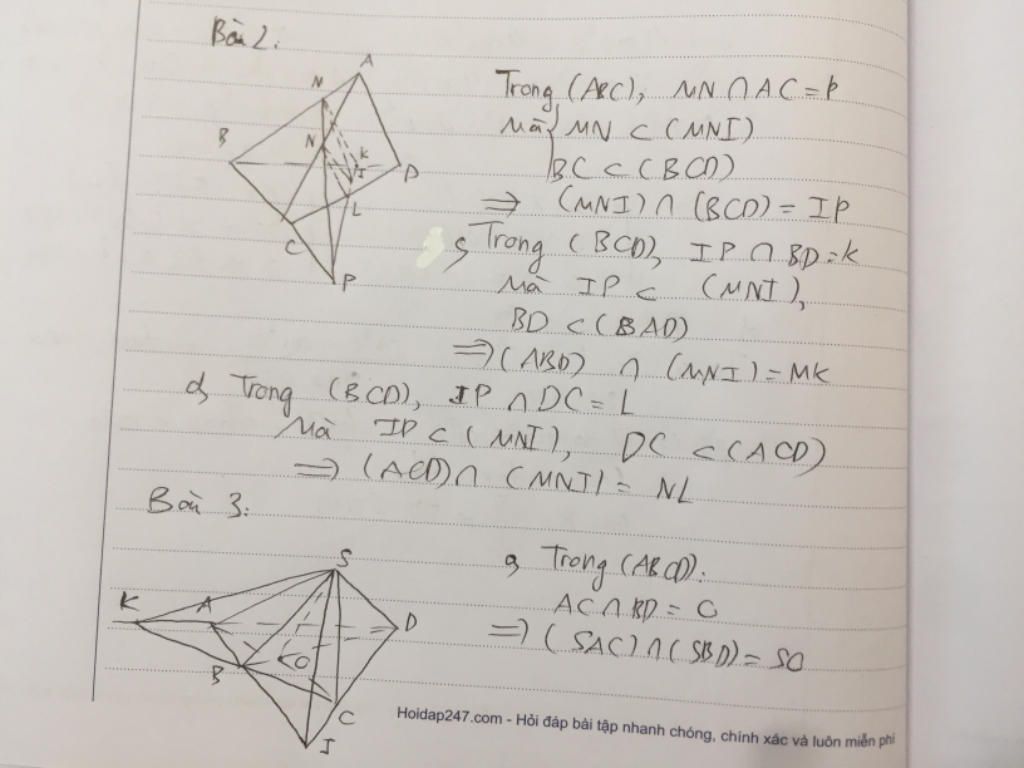 Bài 2:
A
N
B
N
K
I
D
L
C
P
Trong (ABC), MN ∩ AC = P
Mà MN ⊂ (MNI)
BC ⊂ (BCD)
⇒ (MNI) ∩ (BCD) = IP
Trong (BCD), IP ∩ BD = K
Mà IP ⊂ (MNI),
BD ⊂ (BAD)
⇒ (ABD) ∩ (MNI) = MK
d, Trong (BCD), IP ∩ DC = L
Mà IP ⊂ (MNI), DC ⊂ (ACD)
⇒ (ACD) ∩ (MNI) = NL
Bài 3:
S
K
A
D
B
O
C
I
a, Trong (ABCD):
AC ∩ BD = O
⇒ (SAC) ∩ (SBD) = SO
Hoidap247.com - Hỏi đáp bài tập nhanh chóng, chính xác và luôn miễn phí